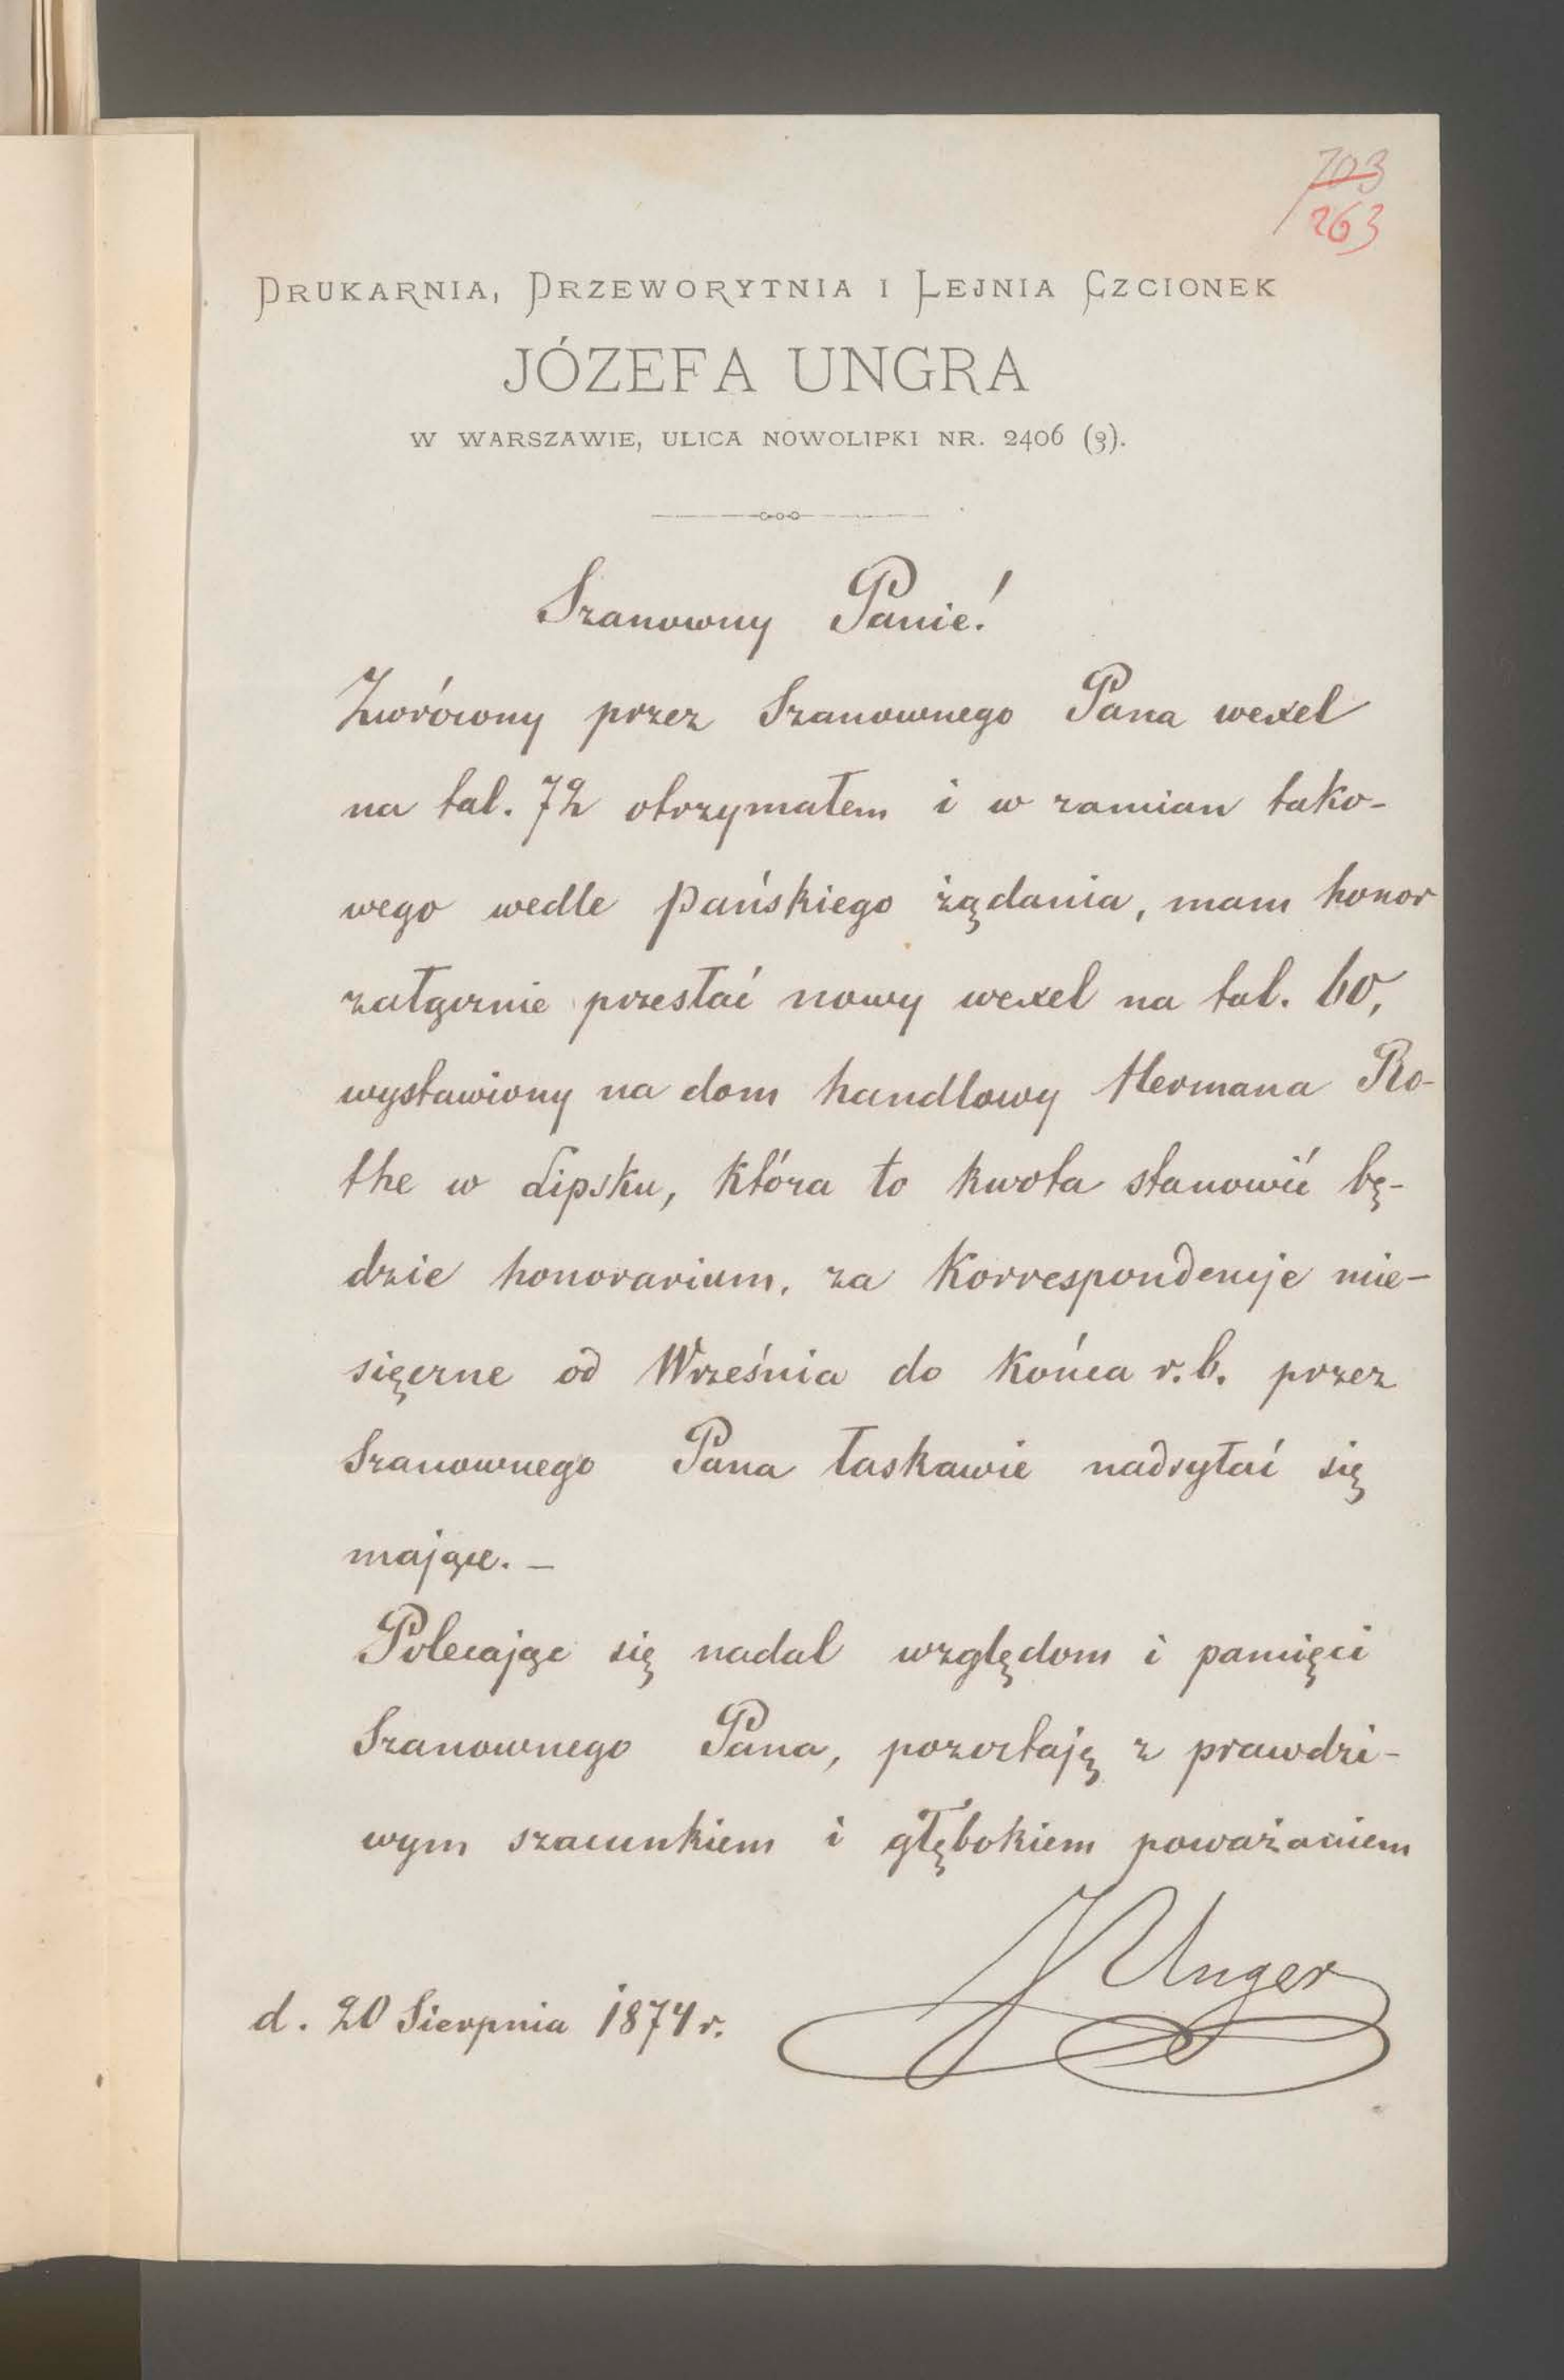 703
263
DRUKARNIA, DRZEWORYTNIA I LEJNIA CZCIONEK
JÓZEFA UNGRA
W WARSZAWIE, ULICA NOWOLIPKI NR. 2406 (3).
Szanowny Panie!
Zwrócony przez Szanownego Pana wexel
na tal. 72 otrzymałem i w zamian tako-
wego wedle Pańskiego żądania, mam honor
załącznie przesłać nowy wexel na tal. 60,
wystawiony na dom handlowy Hermana Ro-
the w Lipsku, która to kwota stanowić bę-
dzie honorarium, za Korrespondencje mie-
sięczne od Września do Końca r.b. przez
Szanownego Pana łaskawie nadsyłać się
mające. –
Polecając się nadal względom i pamięci
Szanownego Pana, pozostaję z prawdzi-
wym szacunkiem i głębokiem poważaniem
J Unger
d. 20 Sierpnia 1874 r.